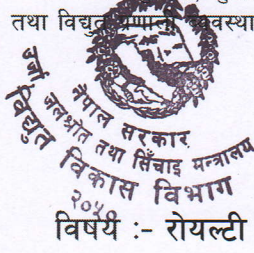 तथा विद्युत प्रणाली व्यवस्था
नेपाल सरकार
उर्जा जलश्रोत तथा सिँचाइ मन्त्रालय
विद्युत विकास विभाग
विषय :- रोयल्टी